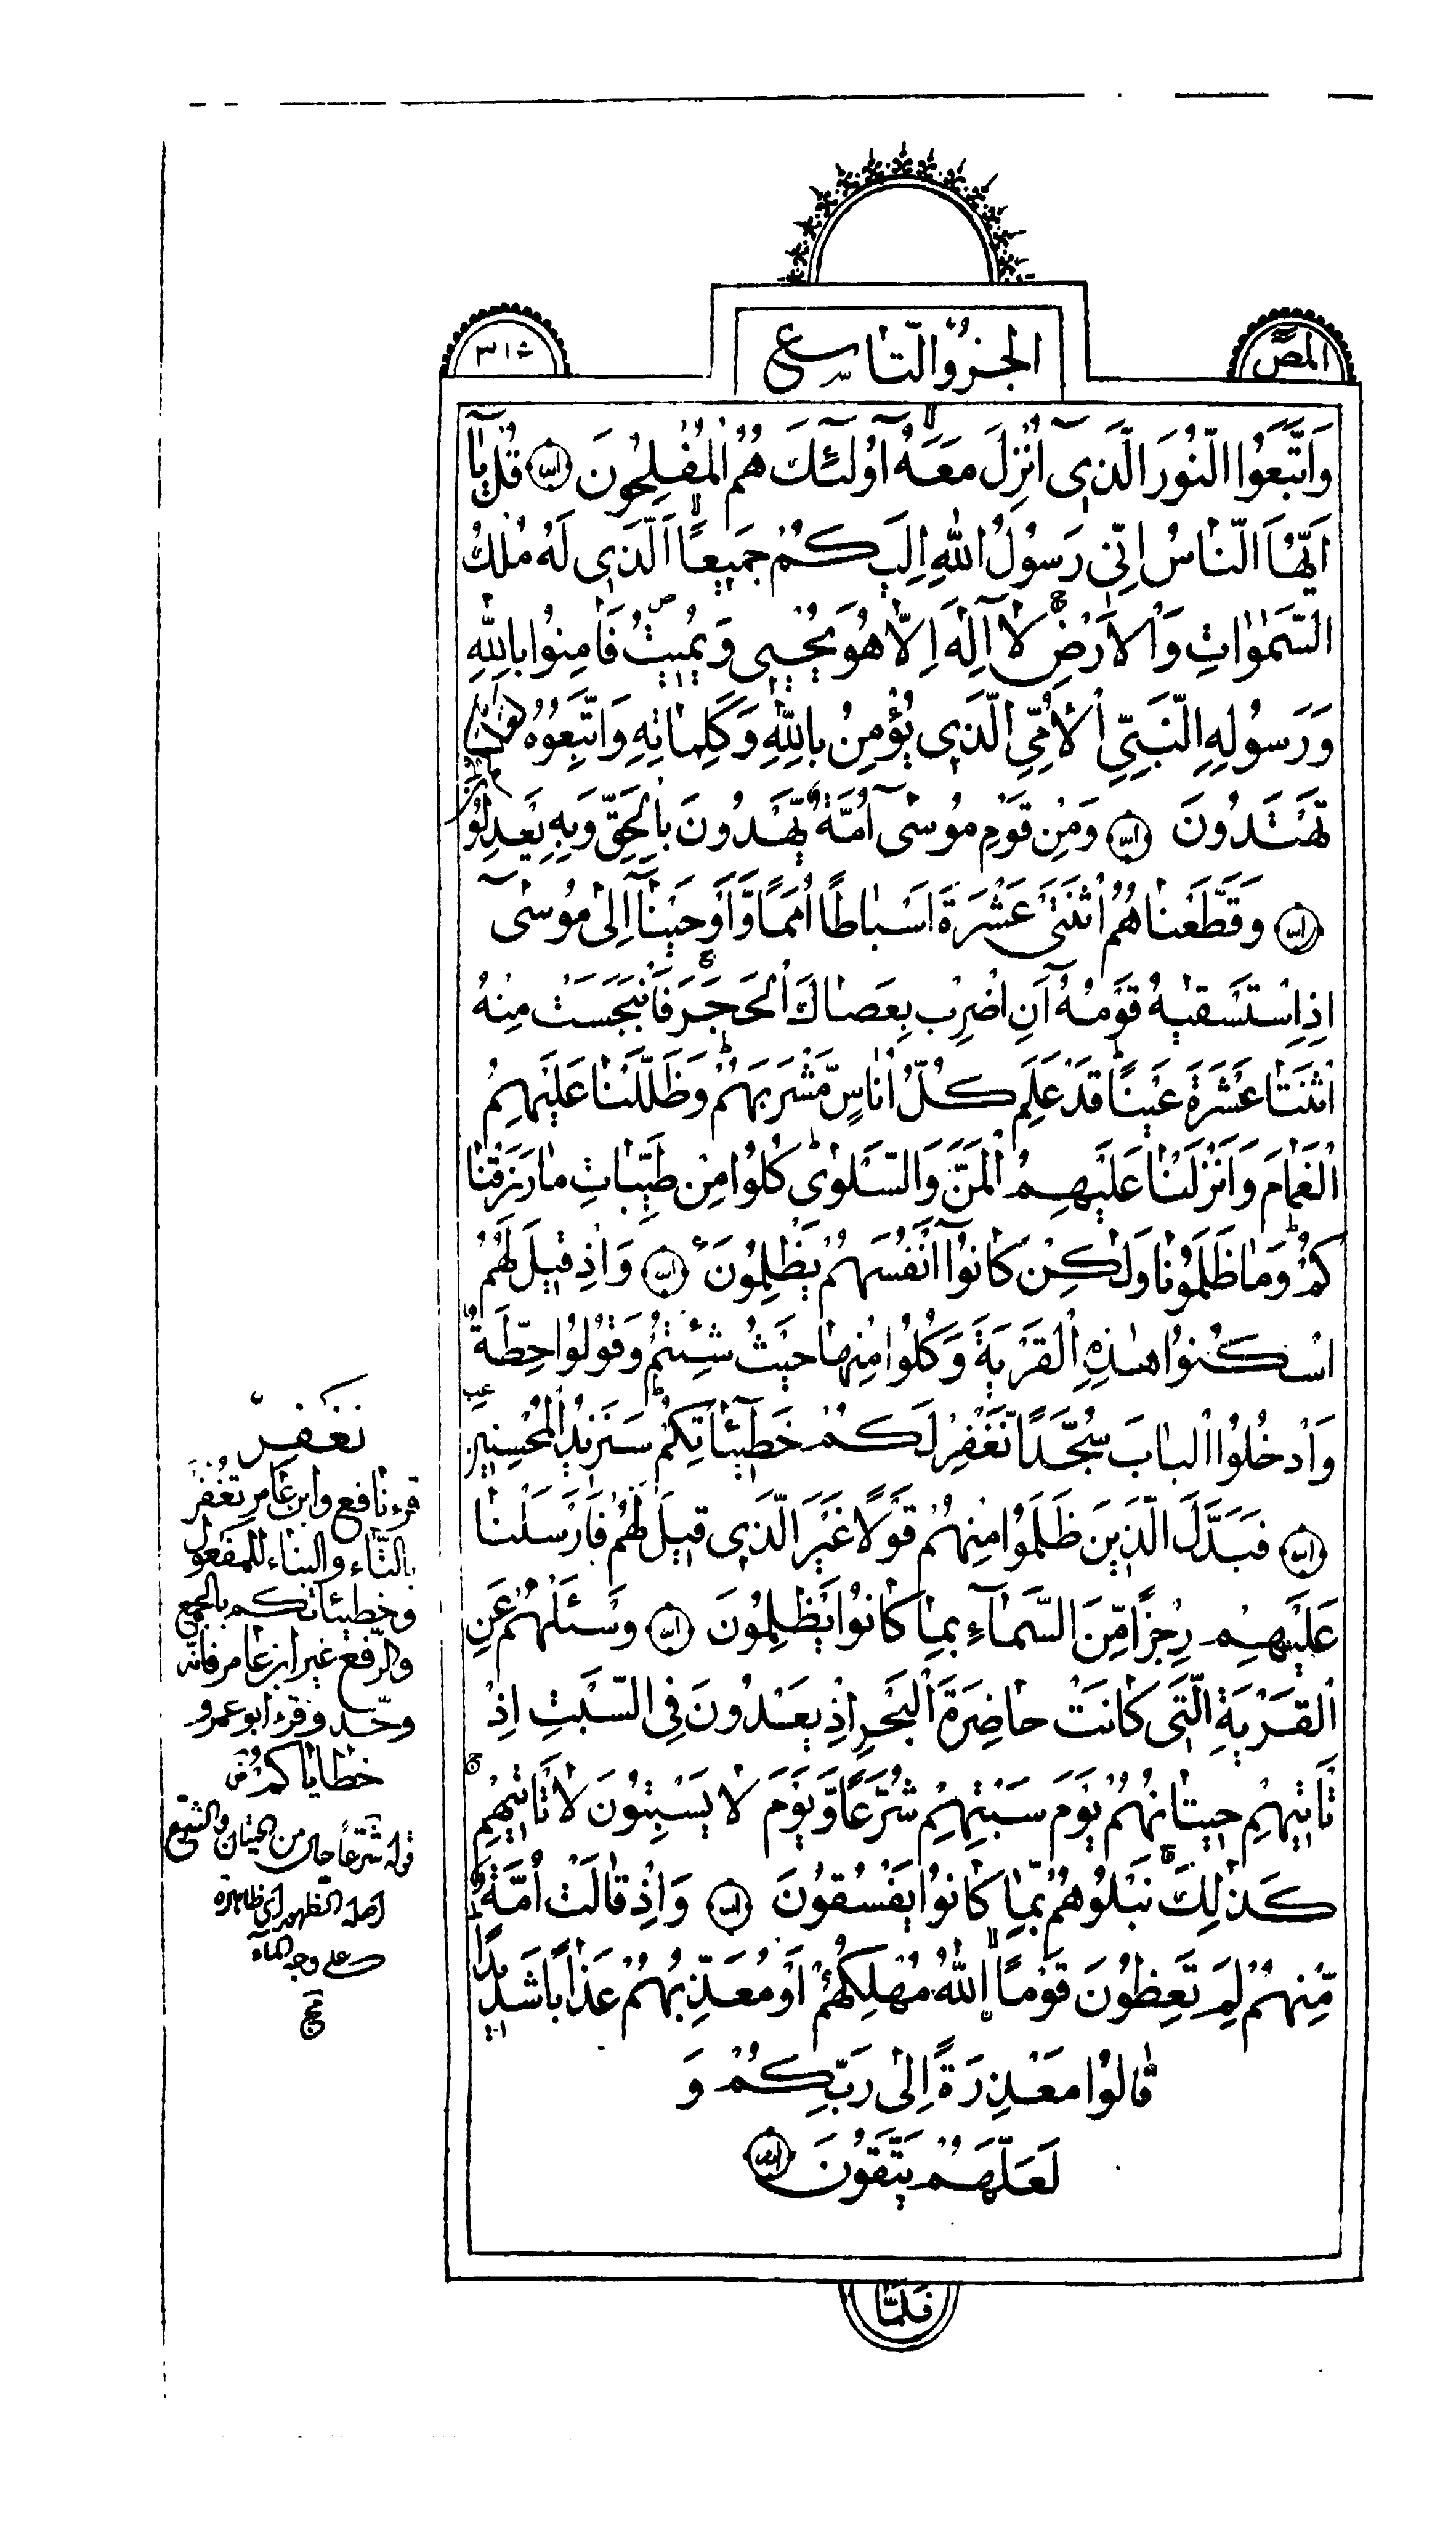 المص
الجزؤ التاسع
٣١٥
وَاتَّبَعُوا النُّورَ الَّذِي أُنْزِلَ مَعَهُ أُولَٰئِكَ هُمُ الْمُفْلِحُونَ قُلْ يَا
أَيُّهَا النَّاسُ إِنِّي رَسُولُ اللَّهِ إِلَيْكُمْ جَمِيعًا الَّذِي لَهُ مُلْكُ
السَّمٰوَاتِ وَالْأَرْضِ لَا إِلَٰهَ إِلَّا هُوَ يُحْيِي وَيُمِيتُ فَآمِنُوا بِاللَّهِ
وَرَسُولِهِ النَّبِيِّ الْأُمِّيِّ الَّذِي يُؤْمِنُ بِاللَّهِ وَكَلِمَاتِهِ وَاتَّبِعُوهُ لَعَلَّكُمْ
تَهْتَدُونَ وَمِنْ قَوْمِ مُوسَى أُمَّةٌ يَهْدُونَ بِالْحَقِّ وَبِهِ يَعْدِلُونَ
وَقَطَّعْنَاهُمُ اثْنَتَيْ عَشْرَةَ أَسْبَاطًا أُمَمًا وَأَوْحَيْنَا إِلَى مُوسَى
إِذِ اسْتَسْقٰيهُ قَوْمُهُ أَنِ اضْرِبْ بِعَصَاكَ الْحَجَرَ فَانْبَجَسَتْ مِنْهُ
اثْنَتَا عَشْرَةَ عَيْنًا قَدْ عَلِمَ كُلُّ أُنَاسٍ مَشْرَبَهُمْ وَظَلَّلْنَا عَلَيْهِمُ
الْغَمَامَ وَأَنْزَلْنَا عَلَيْهِمُ الْمَنَّ وَالسَّلْوَى كُلُوا مِنْ طَيِّبَاتِ مَا رَزَقْنَا
كُمْ وَمَا ظَلَمُونَا وَلَٰكِنْ كَانُوا أَنْفُسَهُمْ يَظْلِمُونَ وَإِذْ قِيلَ لَهُمُ
اسْكُنُوا هَٰذِهِ الْقَرْيَةَ وَكُلُوا مِنْهَا حَيْثُ شِئْتُمْ وَقُولُوا حِطَّةٌ
وَادْخُلُوا الْبَابَ سُجَّدًا نَغْفِرْ لَكُمْ خَطِيئَاتِكُمْ سَنَزِيدُ الْمُحْسِنِينَ
فَبَدَّلَ الَّذِينَ ظَلَمُوا مِنْهُمْ قَوْلًا غَيْرَ الَّذِي قِيلَ لَهُمْ فَأَرْسَلْنَا
عَلَيْهِمْ رِجْزًا مِنَ السَّمَاءِ بِمَا كَانُوا يَظْلِمُونَ وَسْئَلْهُمْ عَنِ
الْقَرْيَةِ الَّتِي كَانَتْ حَاضِرَةَ الْبَحْرِ إِذْ يَعْدُونَ فِي السَّبْتِ إِذْ
تَأْتِيهِمْ حِيتَانُهُمْ يَوْمَ سَبْتِهِمْ شُرَّعًا وَيَوْمَ لَا يَسْبِتُونَ لَا تَأْتِيهِمْ
كَذٰلِكَ نَبْلُوهُمْ بِمَا كَانُوا يَفْسُقُونَ وَإِذْ قَالَتْ أُمَّةٌ
مِنْهُمْ لِمَ تَعِظُونَ قَوْمًا اللَّهُ مُهْلِكُهُمْ أَوْ مُعَذِّبُهُمْ عَذَابًا شَدِيدًا
قَالُوا مَعْذِرَةً إِلَى رَبِّكُمْ وَ
لَعَلَّهُمْ يَتَّقُونَ
نغفر
قرء نافع وابن عامر تغفر
بالتاء والبناء للمفعول
وخطيئاتكم بالجمع
والرفع غير ابن عامر فانه
وحد وقرء ابو عمرو
خطاياكم
قوله شرعا حال من الحيتان والشرع
اصله الظهور اى ظاهرة
على وجه الماء
فلما